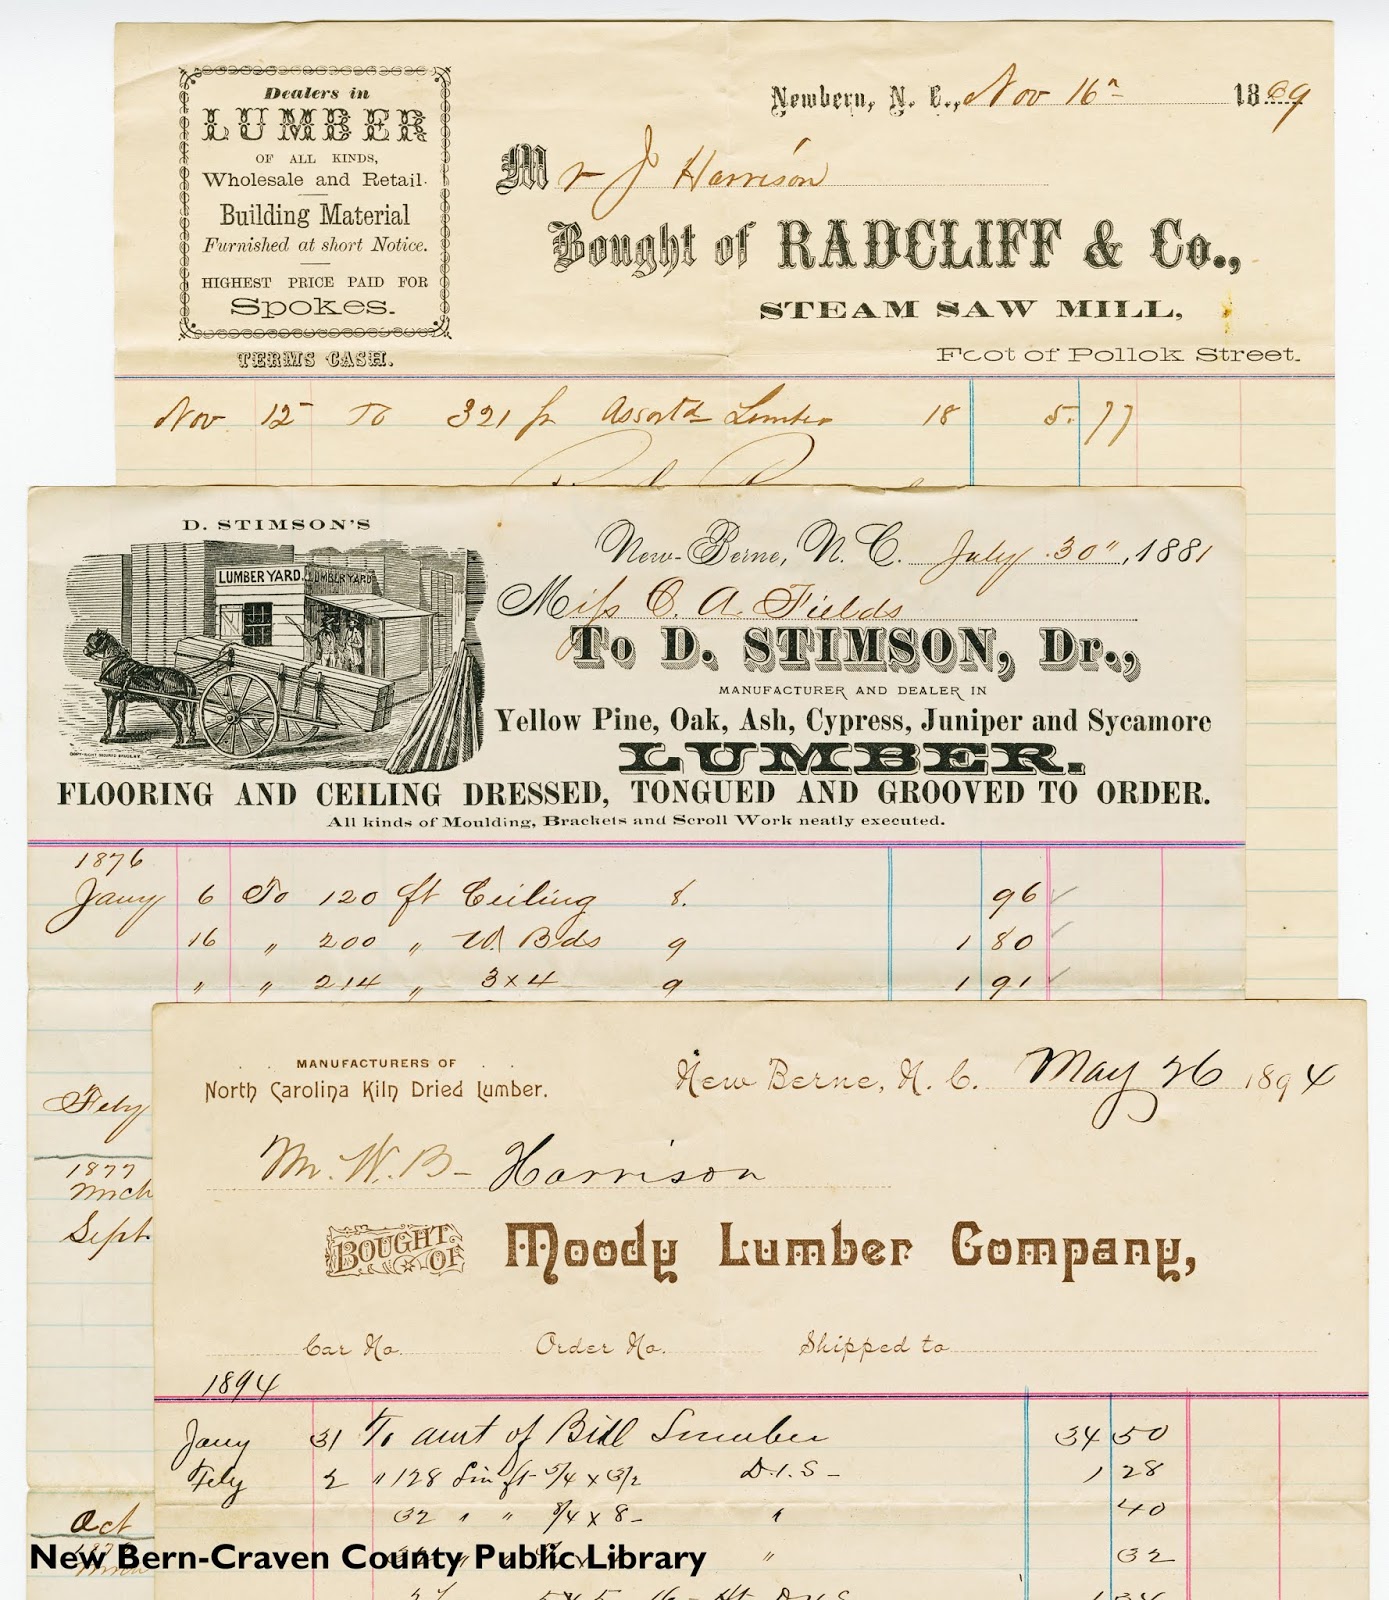 Dealers in
LUMBER
OF ALL KINDS,
Wholesale and Retail.
Building Material
Furnished at short Notice.
HIGHEST PRICE PAID FOR
Spokes.
TERMS CASH.
Newbern, N. C., Nov 16th 1869
Mr J Harrison
Bought of RADCLIFF & Co.,
STEAM SAW MILL,
Foot of Pollok Street.
Nov 12 To 321 ft Assortd Lumber 18 5 77
D. STIMSON'S
LUMBER YARD. LUMBER YARD
New-Berne, N. C. July 30", 1881
Miss C. A. Fields
To D. STIMSON, Dr.,
MANUFACTURER AND DEALER IN
Yellow Pine, Oak, Ash, Cypress, Juniper and Sycamore
LUMBER.
FLOORING AND CEILING DRESSED, TONGUED AND GROOVED TO ORDER.
All kinds of Moulding, Brackets and Scroll Work neatly executed.
1876
Jany 6 To 120 ft Ceiling 8. 96
16 " 200 " W. Bds 9 1 80
" " 214 " 3x4 9 1 91
Feby
1877
Mch
Sept.
Oct
MANUFACTURERS OF
North Carolina Kiln Dried Lumber.
New Berne, N. C. May 26 1894
Mr. W. B- Harrison
BOUGHT OF Moody Lumber Company,
Car No. Order No. Shipped to
1894
Jany 31 To amt of Bill Lumber 34 50
Feby 2 " 128 Lin ft 5/4 x 3/2 D.I.S- 1 28
32 " " 8- " 40
" 32
New Bern-Craven County Public Library